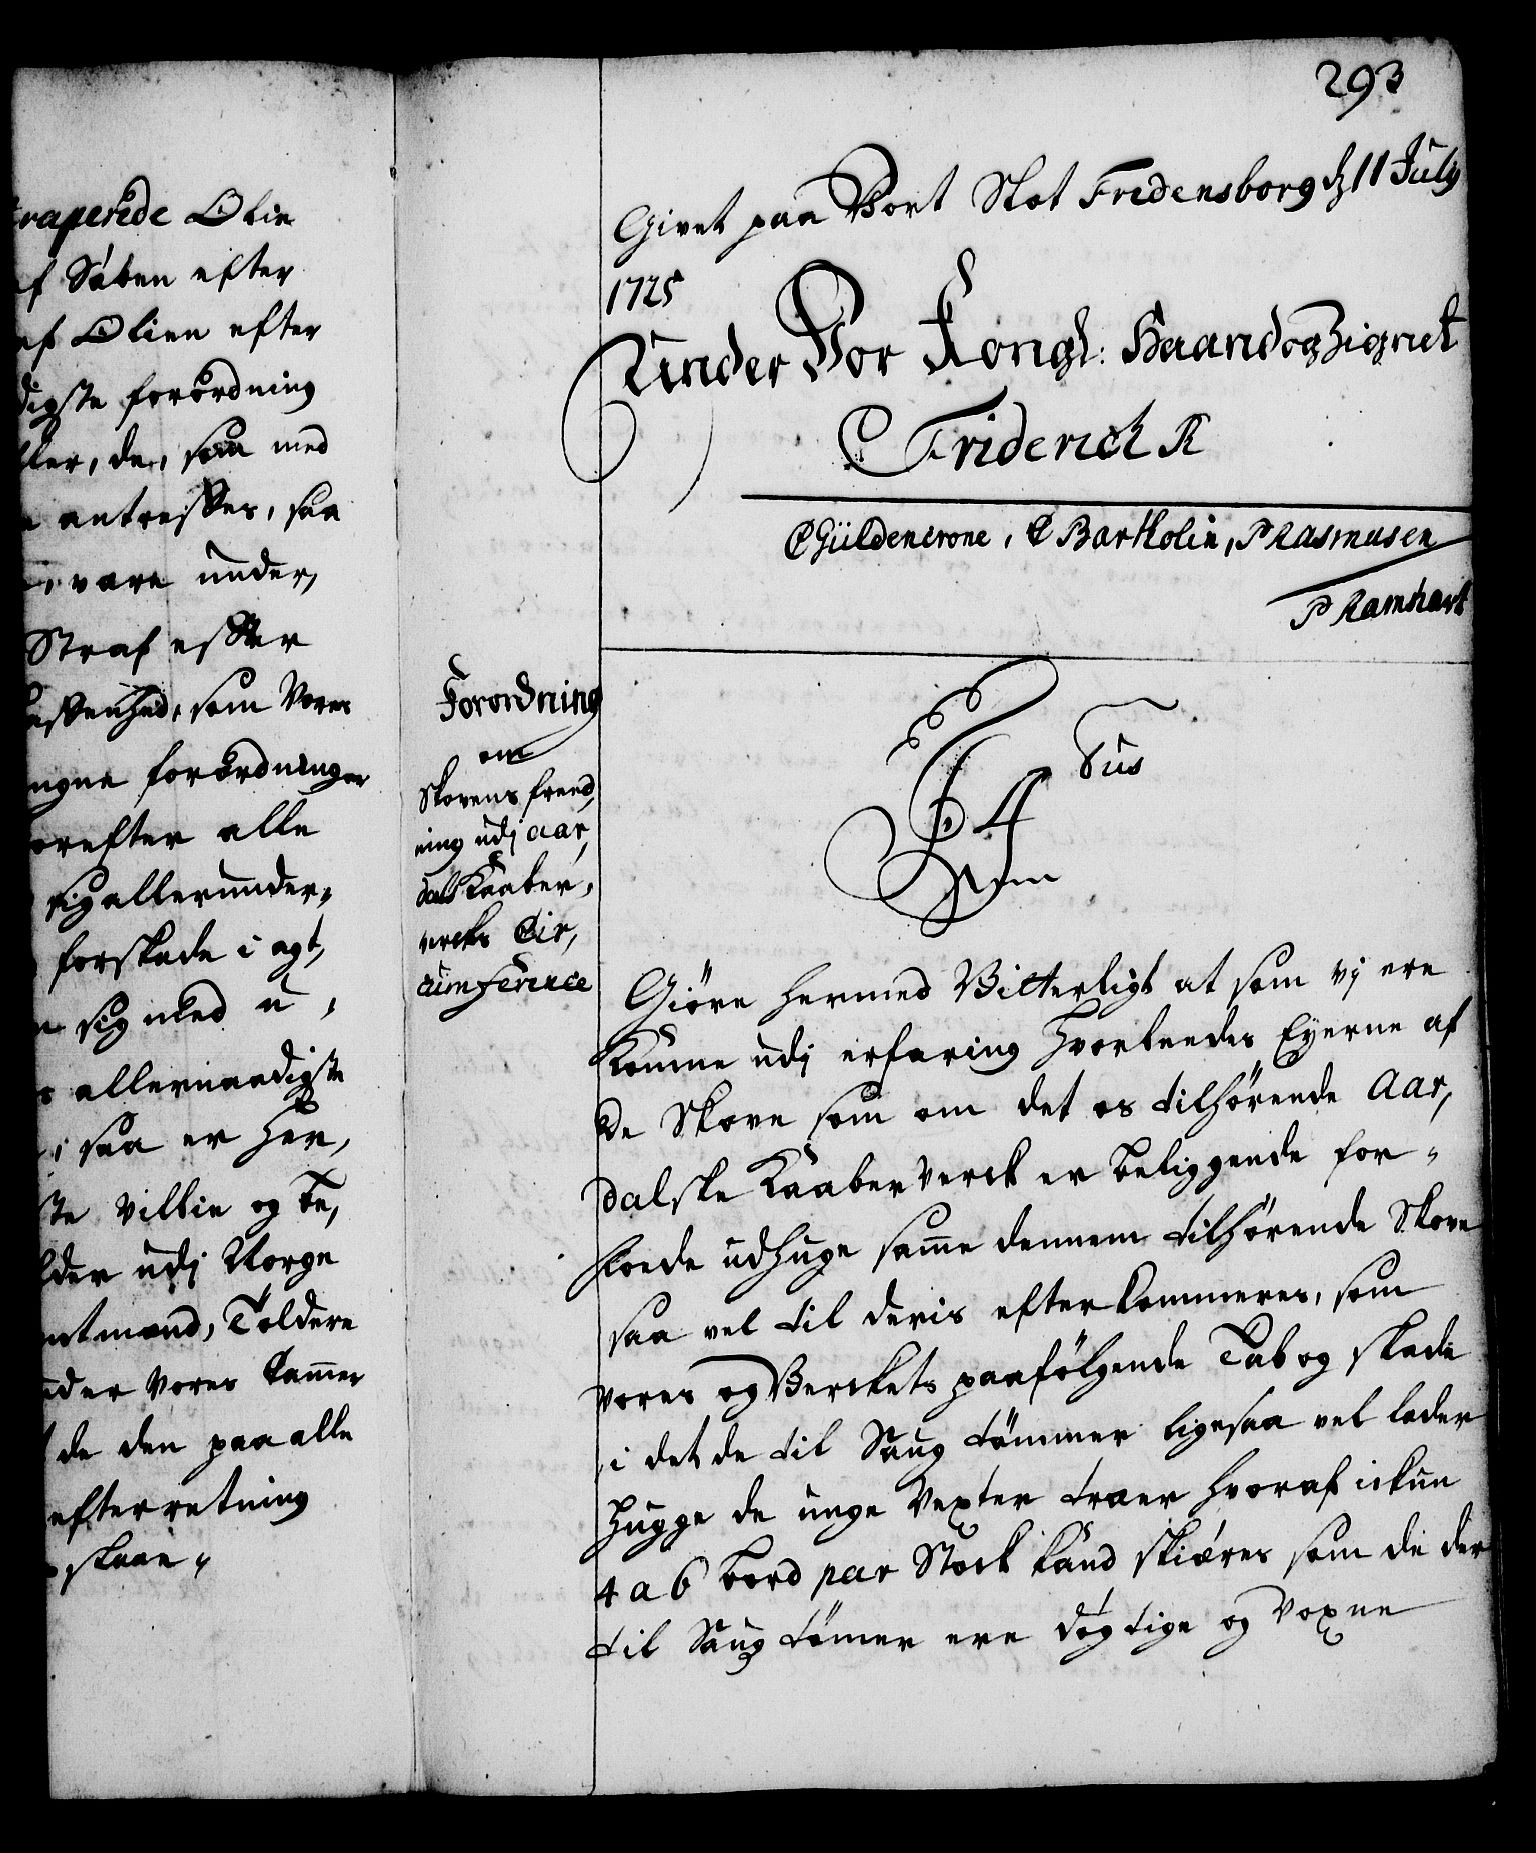 293
raperede Olie
af Såben efter
af Olien efter
digste forordning
ller, de, som med
antreffes, saa
vare under,
Straf efter
skenhed, som Vores
ngne forordninger
orefter alle
sig allerunder,,
forskade i agt,
sig med u,
allernaadigste
i saa er her,
ste villie og be,
lder udj Norge
mtmænd, Toldere
nder Vores Cammer
de den paa alle
efterretning
skaae,,
Givet paa Vort Slot Fredensborg d 11 July
1725
Under Vor Kongl: Haand og Zignet
Friderich R
C Güldencrone, C Bartholin, P Rasmusen
P Ramhart
Forordning
om
Skovens freed,
ning udj Aar,
dals Kaaber,
vercks Cir,
cumference
F 4 Tus
Giöre hermed Vitterligt at som vj ere
Komme udj erfaring hvorleedes Eyerne af
de Skove som om det os tilhörende Aar,
dalske Kaaberverck er beliggende for,,
huge samme dennem tilhörende Skove
saa vel til deris efterkommeres, som
vores og Verckets paafölgende Tab og skade
i det de til Saug tömmer ligesaa vel lader
hugge de unge Vexter træer hvoraf ickun
4 a 6 bord per Stock kand skiæres som de der
til Saug tömer ere dögtige og Voxne